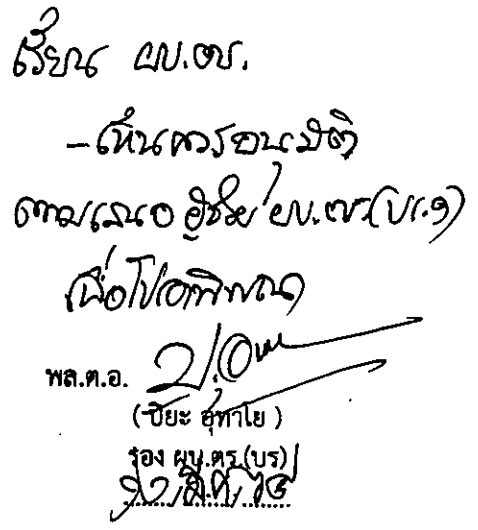 เรียน ผบ.ตร.
- เห็นควรอนุมัติ
ตามเสนอ ผู้ช่วย ผบ.ตร.(บร.๑)
เพื่อโปรดพิจารณา
พล.ต.อ.
(ปิยะ อุทาโย)
รอง ผบ.ตร.(บร)